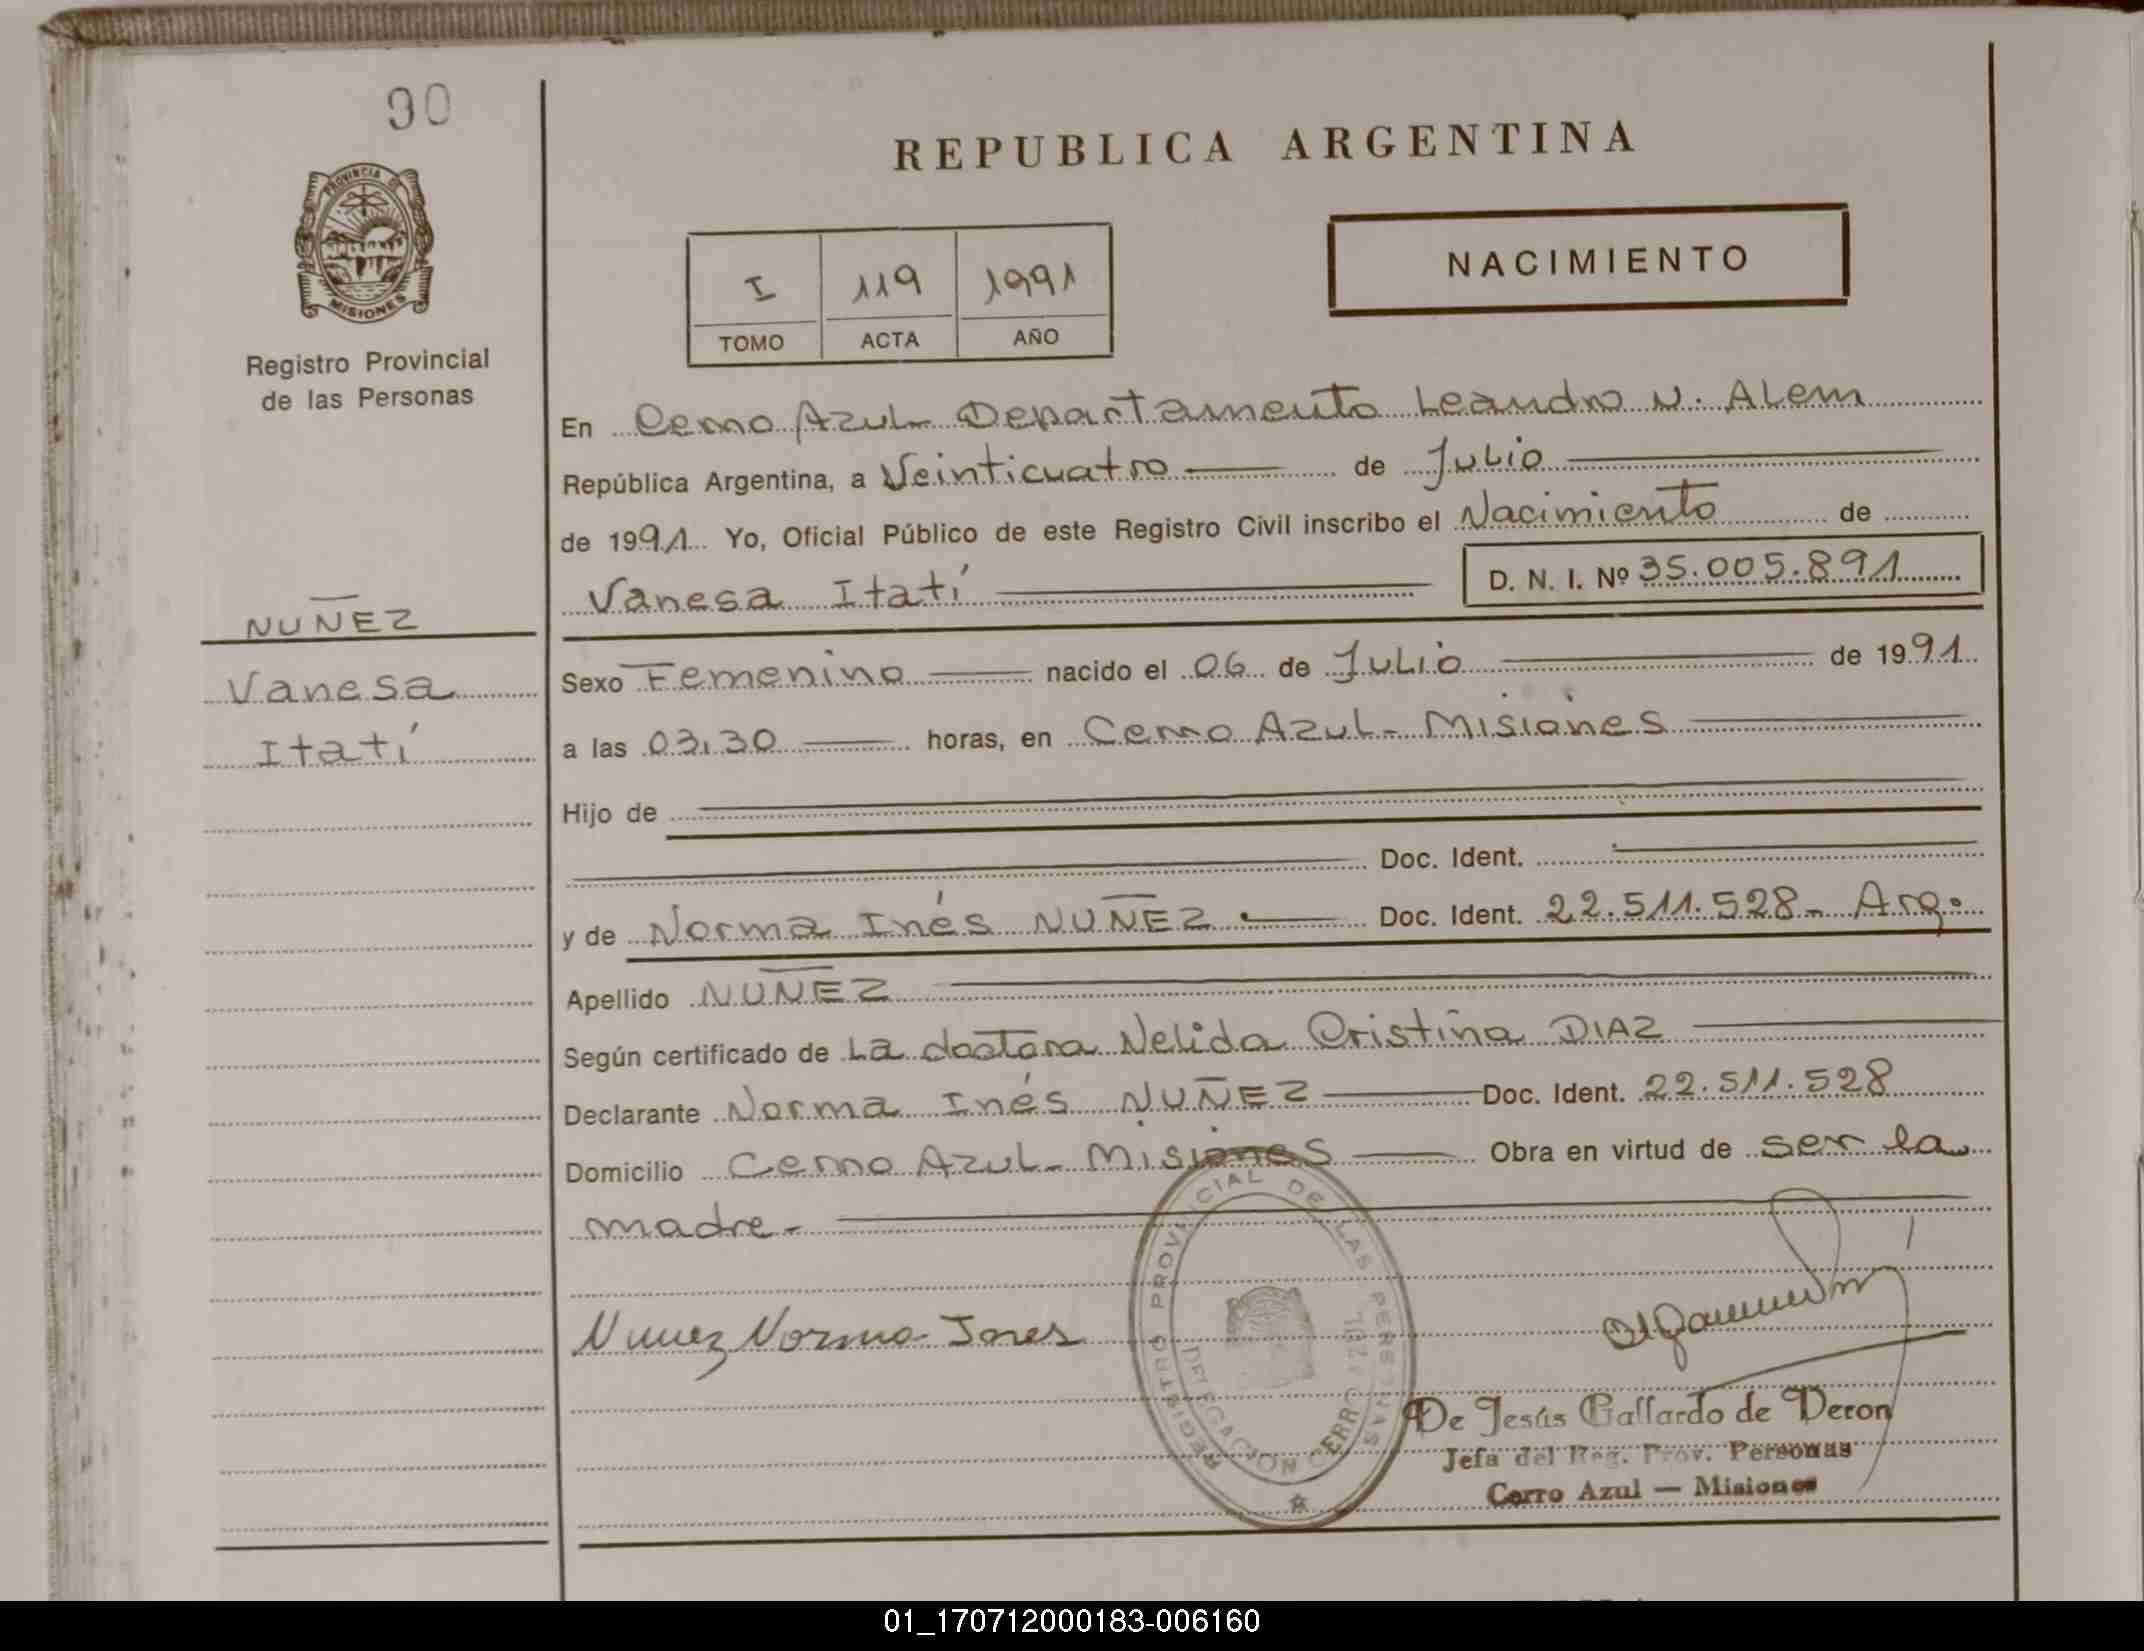 90
REPUBLICA ARGENTINA
PROVINCIA DE
MISIONES
Registro Provincial
de las Personas
I 119 1991
TOMO ACTA AÑO
NACIMIENTO
En Cerro Azul - Departamento Leandro N. Alem
República Argentina, a Veinticuatro de Julio
de 1991. Yo, Oficial Público de este Registro Civil inscribo el Nacimiento de
Vanesa Itatí D. N. I. Nº 35.005.891
NUÑEZ
Vanesa
Itatí
Sexo Femenino nacido el 06 de Julio de 1991
a las 03,30 horas, en Cerro Azul - Misiones
Hijo de
Doc. Ident.
y de Norma Inés NUÑEZ Doc. Ident. 22.511.528 - Arg.
Apellido NUÑEZ
Según certificado de La doctora Nelida Cristina DIAZ
Declarante Norma Inés NUÑEZ Doc. Ident. 22.511.528
Domicilio Cerro Azul - Misiones Obra en virtud de ser la
madre -
Nunez Norma Ines
REGISTRO PROVINCIAL DE LAS PERSONAS
DELEGACION CERRO AZUL
De Jesús Gallardo de Deron
Jefa del Reg. Prov. Personas
Cerro Azul — Misiones
01_170712000183-006160